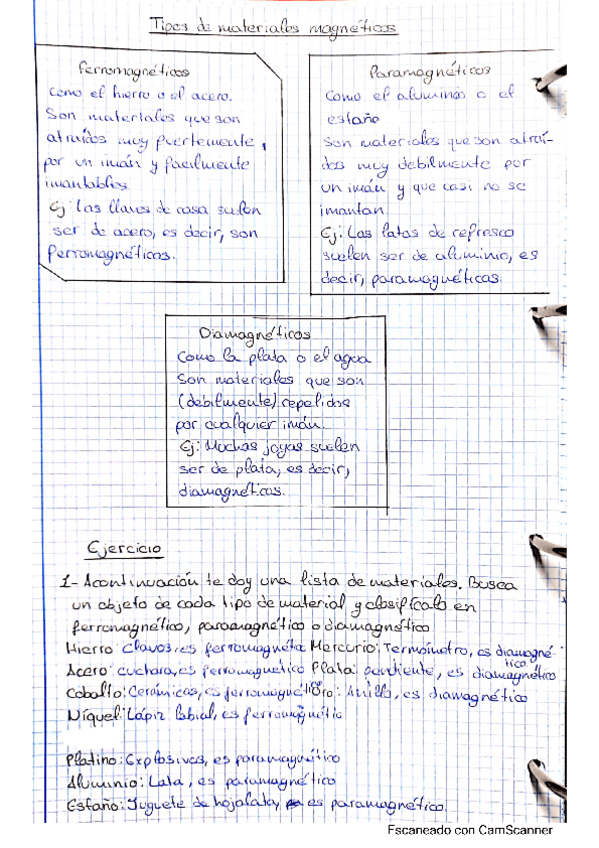 Tipos de materiales magnéticos
Ferromagnéticos
Como el hierro o el acero.
Son materiales que son
atraídos muy fuertemente,
por un imán y facilmente
imantables.
Ej: Las llaves de casa suelen
ser de acero, es decir, son
ferromagnéticos.
Paramagnéticos
Como el aluminio o el
estaño
Son materiales que son atraí-
dos muy debilmente por
un imán y que casi no se
imantan
Ej: Las latas de refresco
suelen ser de aluminio, es
decir, paramagnéticas.
Diamagnéticos
Como la plata o el agua
Son materiales que son
(debilmente) repelidos
por cualquier imán.
Ej: Muchas joyas suelen
ser de plata, es decir,
diamagnéticas.
Ejercicio
1- Acontinuación te doy una lista de materiales. Busca
un objeto de cada tipo de material y clasifícalo en
ferromagnético, paramagnético o diamagnético
Hierro: Clavos, es ferromagnético Mercurio: Termómetro, es diamagné-
tico
Acero: cuchara, es ferromagnético Plata: pendiente, es diamagnético
Cobalto: Cerámicas, es ferromagnético Oro: Anillo, es diamagnético
Níquel: Lápiz labial, es ferromagnético
Platino: Explosivos, es paramagnético
Aluminio: Lata, es paramagnético
Estaño: Juguete de hojalata, es paramagnético.
Escaneado con CamScanner